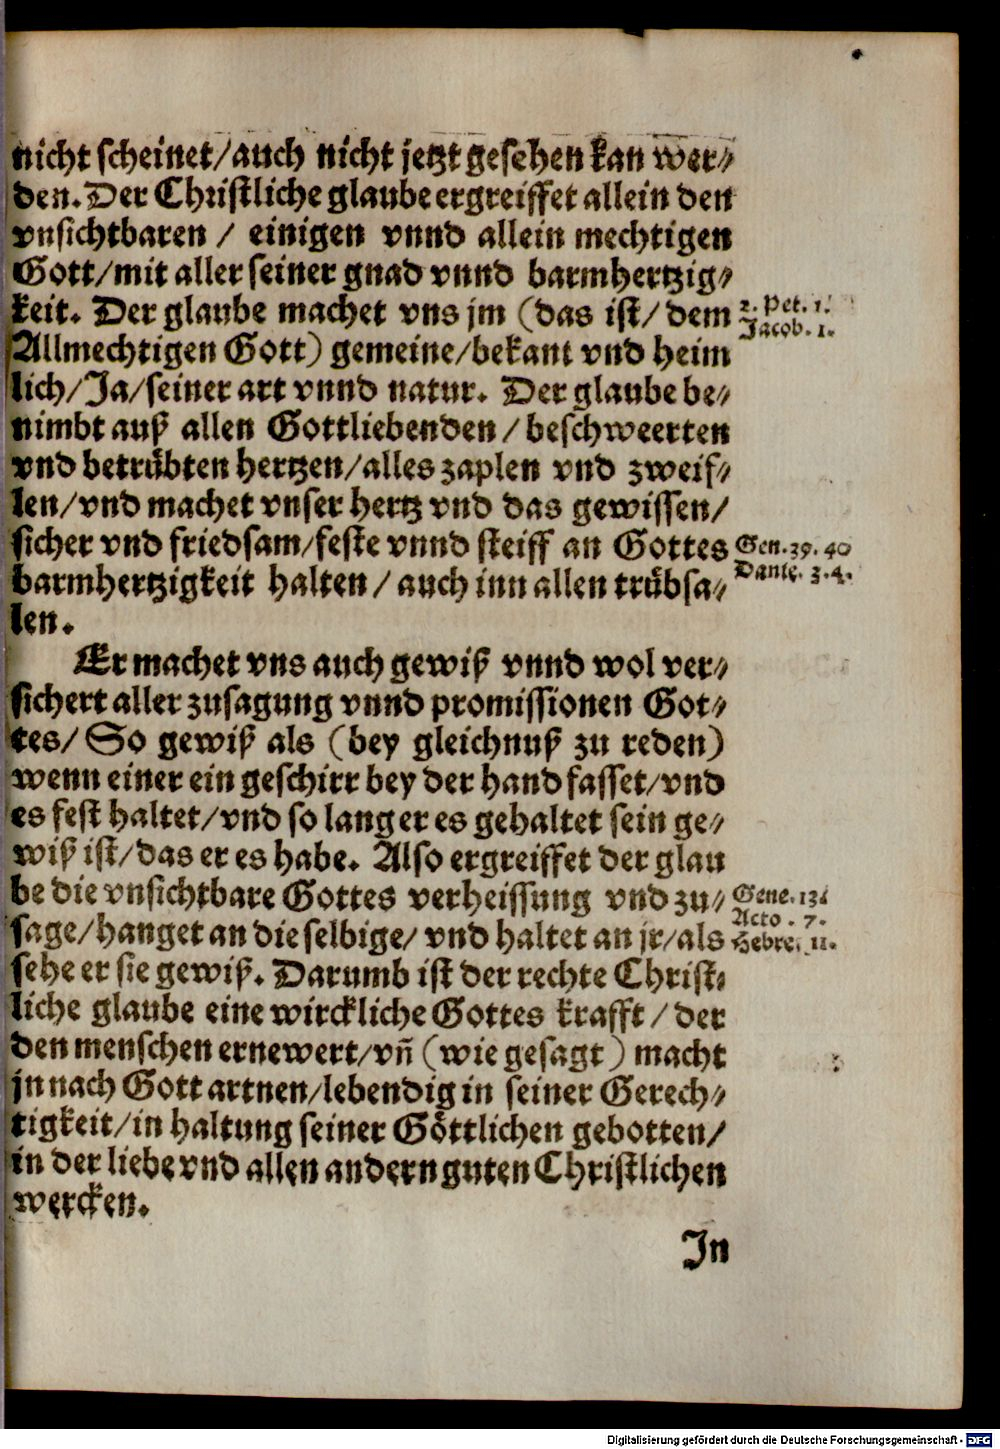 nicht scheinet/auch nicht jetzt gesehen kan wer⸗
den. Der Christliche glaube ergreiffet allein den
vnsichtbaren / einigen vnnd allein mechtigen
Gott/mit aller seiner gnad vnnd barmhertzig⸗
keit. Der glaube machet vns jm (das ist/ dem
2. Pet. 1.
Jacob. 1.
Allmechtigen Gott) gemeine/bekant vnd heim
lich/Ja/seiner art vnnd natur. Der glaube be⸗
nimbt auß allen Gottliebenden / beschweerten
vnd betrübten hertzen/alles zaplen vnd zweif⸗
len/vnd machet vnser hertz vnd das gewissen/
sicher vnd friedsam/feste vnnd steiff an Gottes
Gen. 39. 40
barmhertzigkeit halten / auch inn allen trübsa⸗
Danie. 3. 4.
len.
Er machet vns auch gewiß vnnd wol ver⸗
sichert aller zusagung vnnd promissionen Got⸗
tes/ So gewiß als (bey gleichnuß zu reden)
wenn einer ein geschirr bey der hand fasset/vnd
es fest haltet/vnd so lang er es gehaltet sein ge⸗
wiß ist/das er es habe. Also ergreiffet der glau
be die vnsichtbare Gottes verheissung vnd zu⸗
Gene. 13.
Acto. 7.
sage/hanget an die selbige/ vnd haltet an jr/als
Hebre. 11.
sehe er sie gewiß. Darumb ist der rechte Christ⸗
liche glaube eine wirckliche Gottes krafft / der
den menschen ernewert/vñ (wie gesagt) macht
jn nach Gott artnen/lebendig in seiner Gerech⸗
tigkeit/in haltung seiner Göttlichen gebotten/
in der liebe vnd allen andern guten Christlichen
wercken.
In
Digitalisierung gefördert durch die Deutsche Forschungsgemeinschaft - DFG